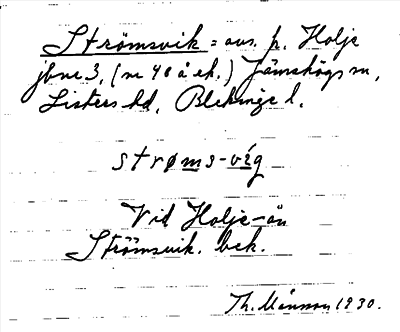 Strömsvik = avs. p. Holje
jbnr 3, (nr 40 å ek.) Jämshögs sn,
Listers hd, Blekinge l.
strøms-vig
Vid Holje-ån
Strömsvik. bek.
Th. Månsson 1930.